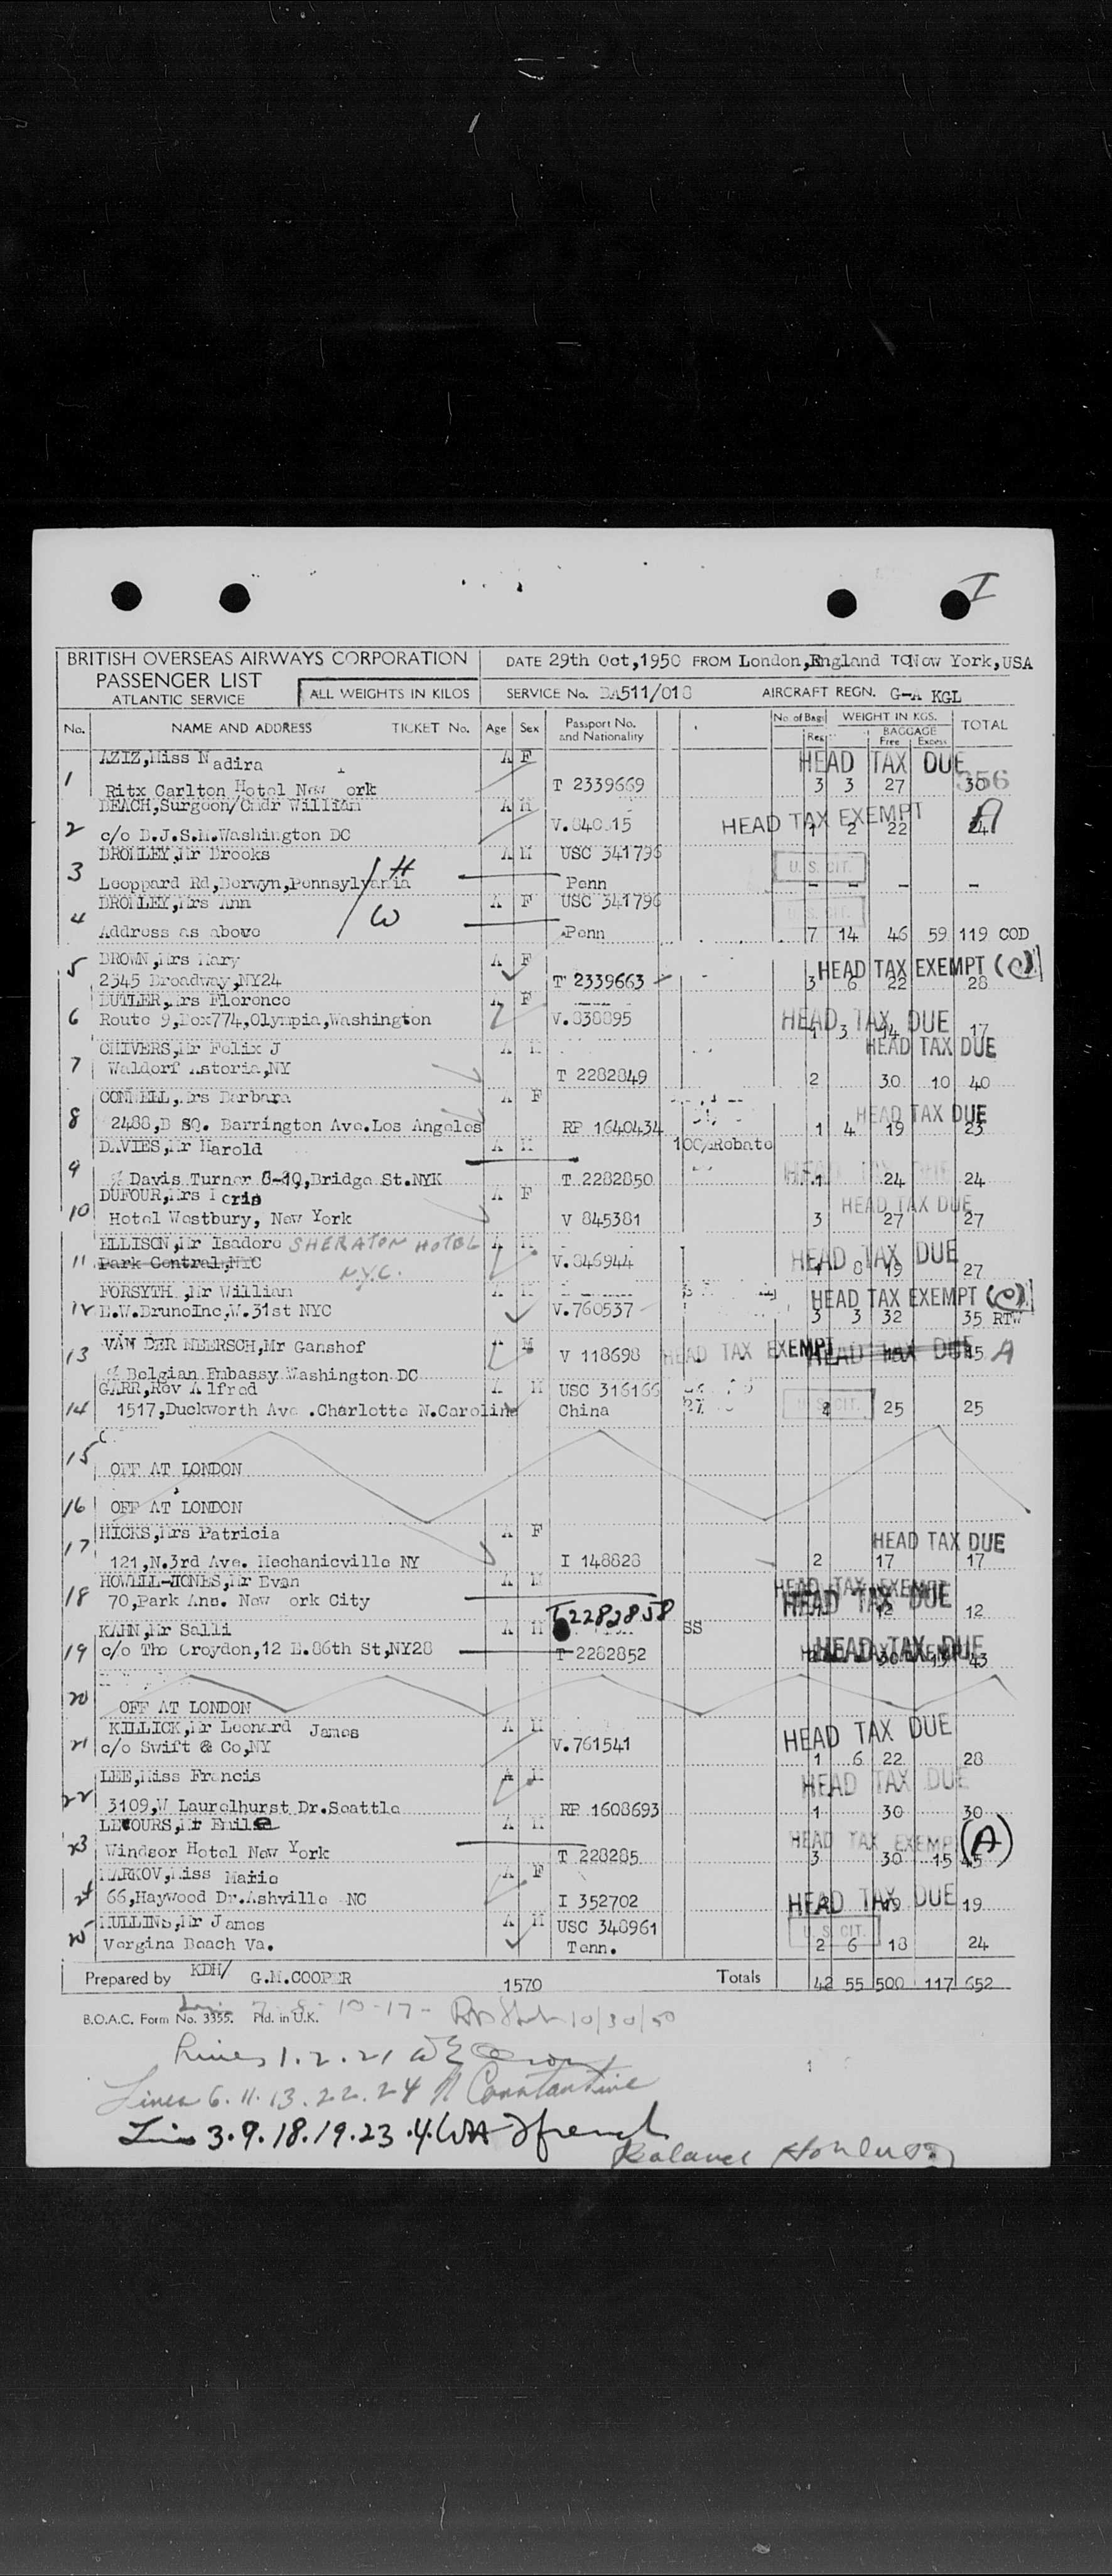 I
BRITISH OVERSEAS AIRWAYS CORPORATION
PASSENGER LIST
ATLANTIC SERVICE
ALL WEIGHTS IN KILOS
DATE 29th Oct,1950 FROM London,England TO New York,USA
SERVICE No. BA511/018 AIRCRAFT REGN. G-A KGL
No. NAME AND ADDRESS TICKET No. Age Sex Passport No. and Nationality No. of Bags Reg. WEIGHT IN KGS. BAGGAGE Free Excess TOTAL
AZIZ,Miss Nadira A F HEAD TAX DUE 356
1 Ritx Carlton Hotel New ork T 2339669 3 3 27 30
BEACH,Surgeon/Cmdr William A M HEAD TAX EXEMPT A
2 c/o B.J.S.M.Washington DC V.840 15 1 2 22 24
BROMLEY,Mr Brooks A M USC 341796 U. S. CIT.
3 Leoppard Rd,Berwyn,Pennsylvania H Penn - - - -
BROMLEY,Mrs Ann A F USC 341796 U. S. CIT.
4 Address as above W Penn 7 14 46 59 119 COD
BROWN,Mrs Mary A F HEAD TAX EXEMPT (C)
5 2345 Broadway,NY24 T 2339663 3 6 22 28
BUTLER,Mrs Florence A F
6 Route 9,Box774,Olympia,Washington V.838895 HEAD TAX DUE 1 3 14 17
CHIVERS,Mr Felix J A M HEAD TAX DUE
7 Waldorf Astoria,NY T 2282849 2 30 10 40
CONNELL,Mrs Barbara A F
8 2488,B SQ. Barrington Ave.Los Angeles RP 1640434 HEAD TAX DUE 1 4 19 23
DAVIES,Mr Harold A M 100%Rebate
9 % Davis Turner 8-10,Bridge St.NYK T 2282850 1 24 24
DUFOUR,Mrs Doris A F HEAD TAX DUE
10 Hotel Westbury, New York V 845381 3 27 27
ELLISON,Mr Isadore SHERATON HOTEL A M
11 Park Central,NYC N.Y.C. V.846944 HEAD TAX DUE 1 8 19 27
FORSYTH ,Mr William A M HEAD TAX EXEMPT (C)
12 E.W.BruneInc,W.31st NYC V.760537 3 3 32 35 RTW
13 VAN DER MEERSCH,Mr Ganshof M V 118698 HEAD TAX EXEMPT HEAD TAX DUE 15 A
% Belgian Embassy Washington DC
GARR,Rev Alfred A M USC 316166
14 1517,Duckworth Ave .Charlotte N.Carolina China U. S. CIT. 2 25 25
15 OFF AT LONDON
16 OFF AT LONDON
17 HICKS,Mrs Patricia A F HEAD TAX DUE
121,N.3rd Ave. Mechanicville NY I 148828 2 17 17
HOWELL-JONES,Mr Evan A M HEAD TAX EXEMPT
18 70,Park Ans. New ork City HEAD TAX DUE 12 12
KAHN,Mr Salli A M T2282858 SS
19 c/o The Croydon,12 E.86th St,NY28 T 2282852 HEAD TAX DUE 30 13 43
20 OFF AT LONDON
KILLICK,Mr Leonard James A M
21 c/o Swift & Co,NY V.761541 HEAD TAX DUE 1 6 22 28
LEE,Miss Francis A HEAD TAX DUE
22 3109,W Laurelhurst Dr.Seattle RP 1608693 1 30 30
LEVOURS,Mr Emile A M HEAD TAX EXEMPT (A)
23 Windsor Hotel New York T 228285 3 30 15 45
MARKOV,Miss Marie A F
24 66,Haywood Dr.Ashville NC I 352702 HEAD TAX DUE 2 19 19
MULLINS,Mr James A M USC 348961 U. S. CIT.
25 Vergina Beach Va. Tenn. 2 6 18 24
Prepared by KDH/ G.M.COOPER 1570 Totals 42 55 500 117 652
B.O.A.C. Form No. 3355. Ptd. in U.K. 7-8-10-17- 10/30/50
Lines 1.2.21
Lines 6.11.13.22.24 Constantine
Lines 3.9.18.19.23.4. WA French
Balance